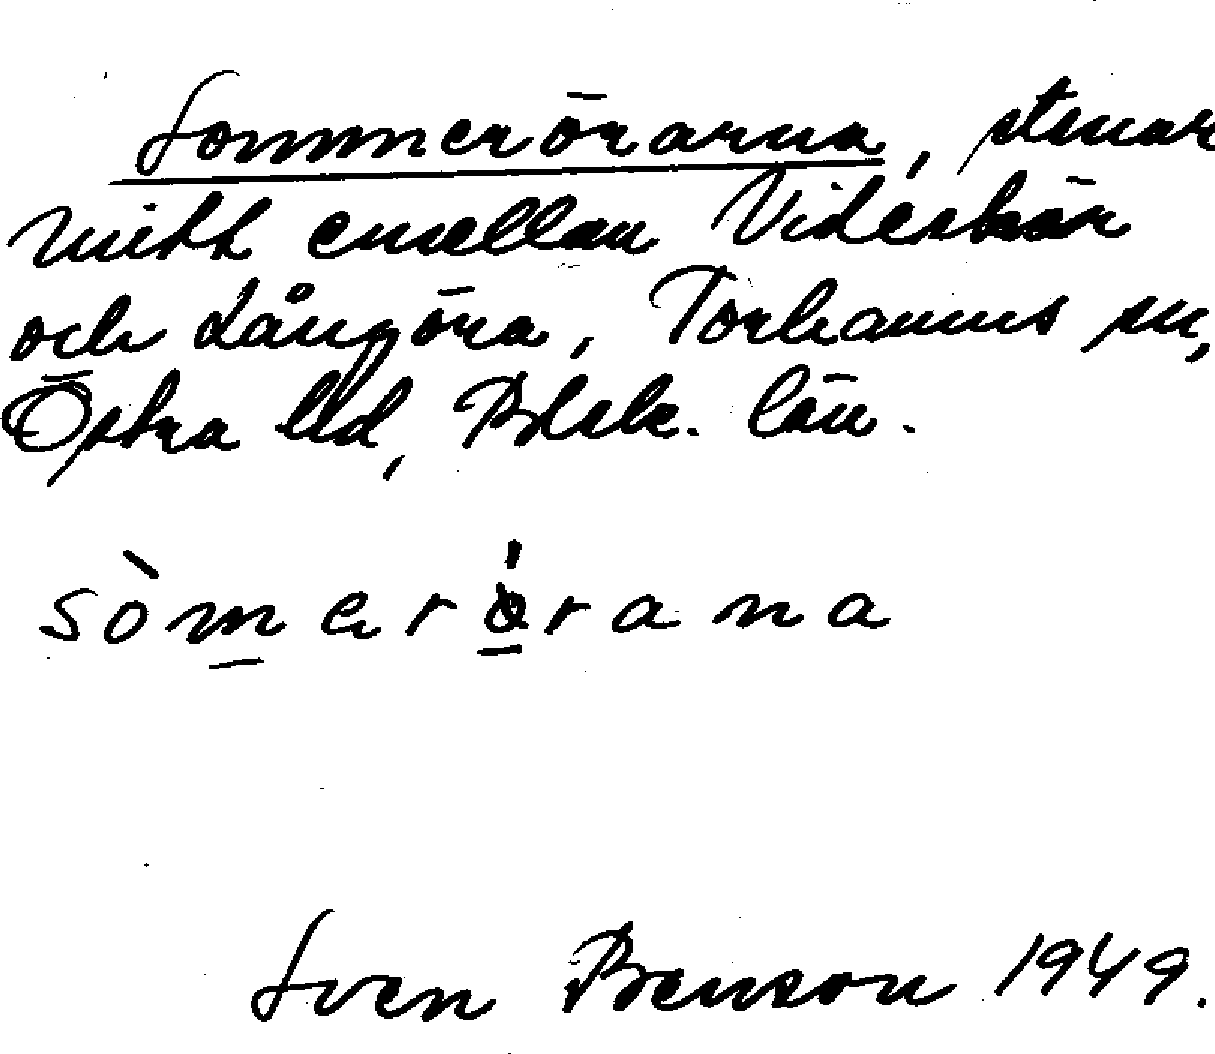 Sommerörarna, stenar
mitt emellan Videskär
och Långöra, Torhamns sn,
Östra hd, Blek. län.
sòmerǿrana
Sven Benson 1949.